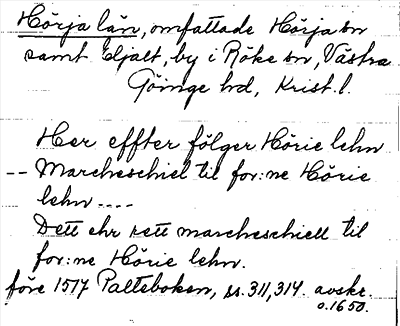 Hörja län, omfattade Hörja sn
samt Eljalt, by i Röke sn, Västra
Göinge hd, Krist. l.
Her effter fölger Hörie lehn
-- Marcheschiel til for:ne Hörie
lehn ----
Dett ehr rett marcheschiell til
for:ne Hörie lehn.
före 1517 Palteboken, ss. 311, 314. avskr.
o. 1650.